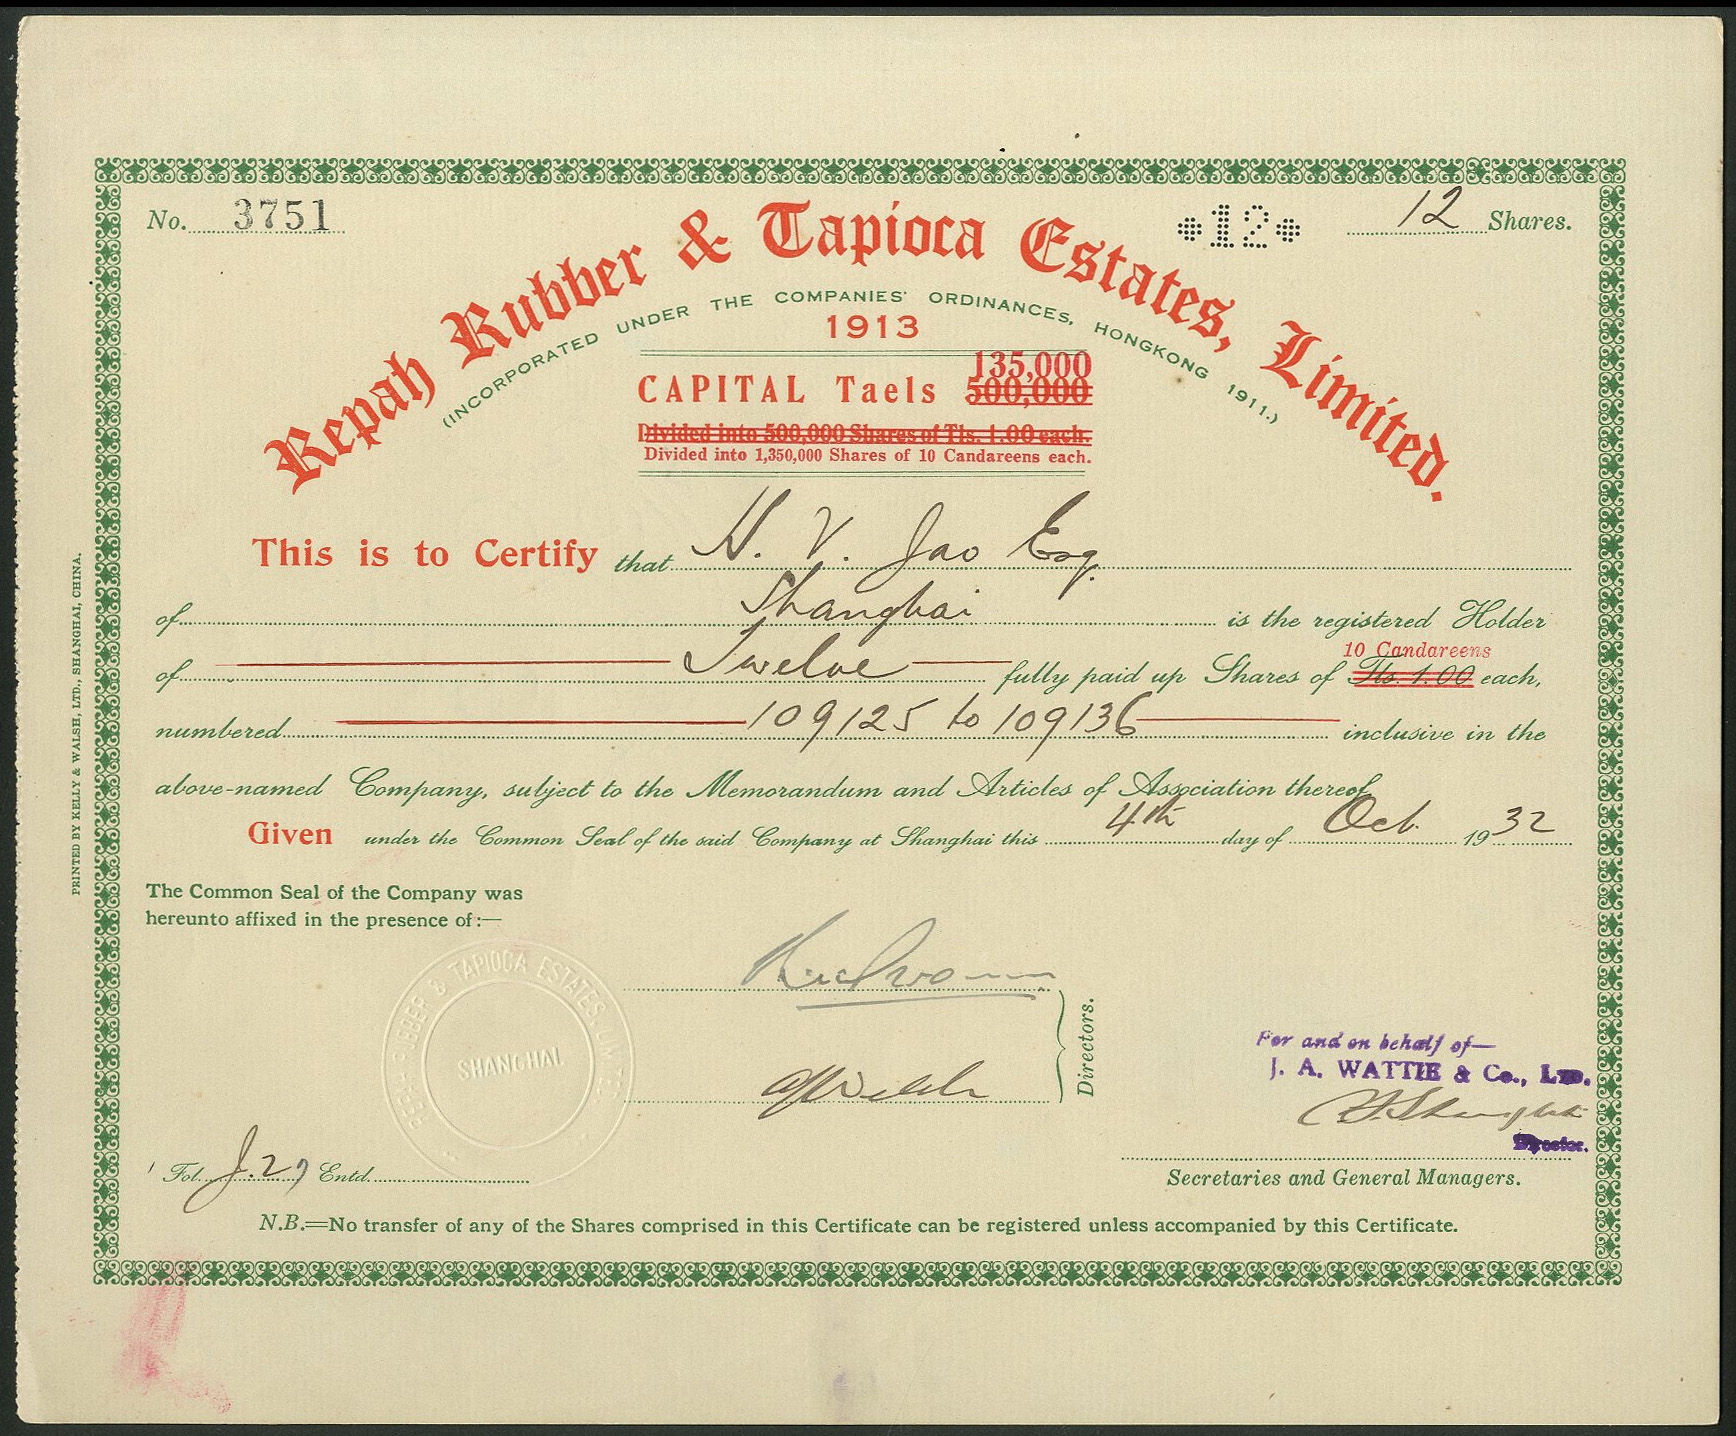 No. 3751
12
12 Shares.
Repah Rubber & Tapioca Estates, Limited.
(INCORPORATED UNDER THE COMPANIES' ORDINANCES, HONGKONG 1911.)
1913
135,000
CAPITAL Taels 500,000
Divided into 500,000 Shares of Tls. 1.00 each.
Divided into 1,350,000 Shares of 10 Candareens each.
This is to Certify that H. V. Jao Esq.
of Shanghai is the registered Holder
10 Candareens
of Twelve fully paid up Shares of Tls. 1.00 each,
numbered 109125 to 109136 inclusive in the
above-named Company, subject to the Memorandum and Articles of Association thereof
Given under the Common Seal of the said Company at Shanghai this 4th day of Oct. 1932
The Common Seal of the Company was
hereunto affixed in the presence of:—
REPAH RUBBER & TAPIOCA ESTATES, LIMITED
SHANGHAI.
Directors.
For and on behalf of—
J. A. WATTIE & Co., LTD.
Director.
Fol. J. 27 Entd.
Secretaries and General Managers.
N.B.—No transfer of any of the Shares comprised in this Certificate can be registered unless accompanied by this Certificate.
PRINTED BY KELLY & WALSH, LTD., SHANGHAI, CHINA.